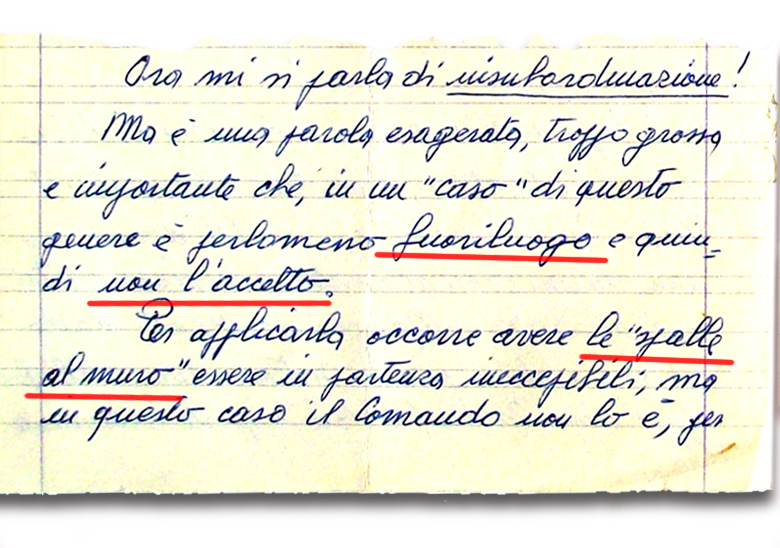 Ora mi si parla di insubordinazione!
Ma è una parola esagerata, troppo grossa
e importante che, in un "caso" di questo
genere è perlomeno fuoriluogo e quin-
di non l'accetto.
Per applicarla occorre avere le "spalle
al muro" essere in partenza ineccepibili, ma
in questo caso il Comando non lo è, per